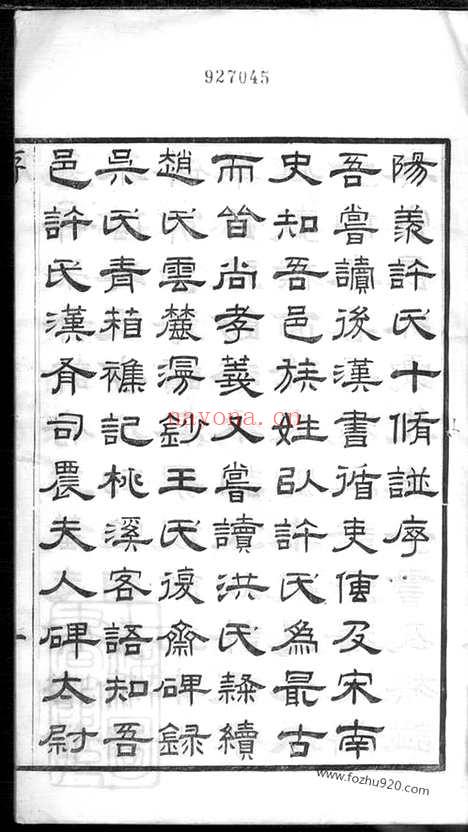 927045
陽羨許氏十脩諩序
吾嘗讀後漢書循吏傳及宋南
史知吾邑族姓㠯許氏爲最古
而皆尚孝義又嘗讀洪氏隸續
趙氏雲麓漫鈔王氏復齋碑録
吳氏青箱襍記桃溪客語知吾
邑許氏漢有司農夫人碑太尉
序
一
nayona.cn
www.fozhu920.com